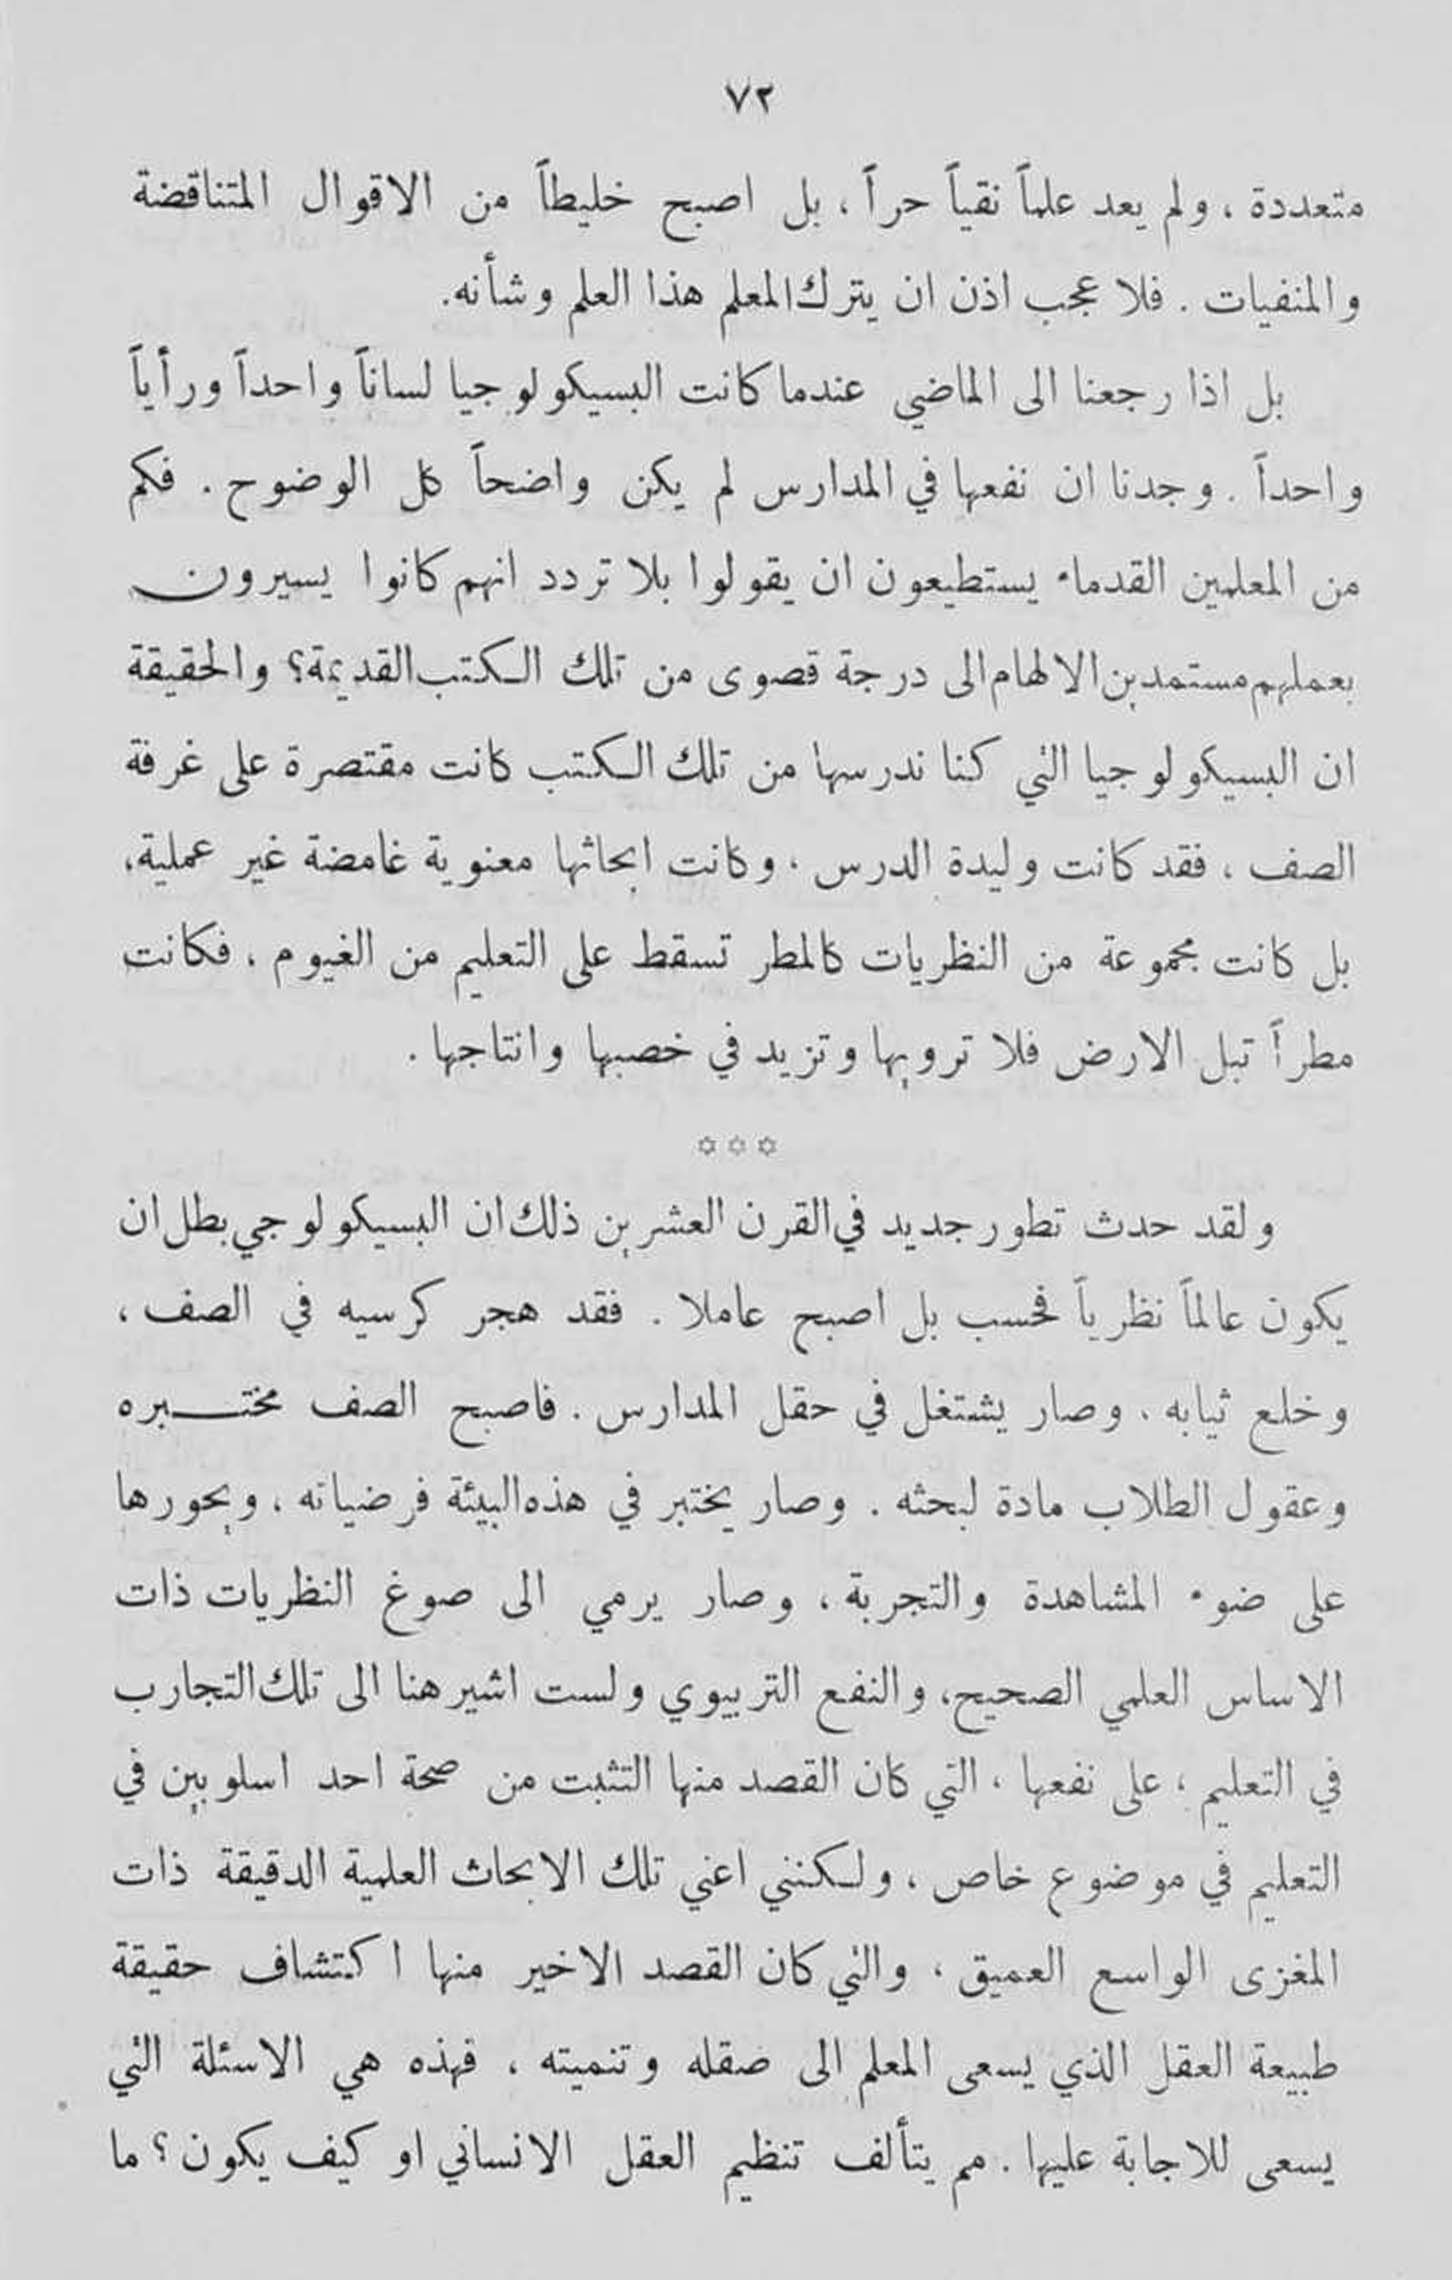 ٧٢
متعددة ، ولم يعد علماً نقياً حراً ، بل اصبح خليطاً من الاقوال المتناقضة
والمنفيات . فلا عجب اذن ان يترك المعلم هذا العلم وشأنه.
بل اذا رجعنا الى الماضي عندما كانت البسيكولوجيا لساناً واحداً ورأياً
واحداً . وجدنا ان نفعها في المدارس لم يكن واضحاً كل الوضوح . فكم
من المعلمين القدماء يستطيعون ان يقولوا بلا تردد انهم كانوا يسيرون
بعملهم مستمدين الالهام الى درجة قصوى من تلك الكتب القديمة؟ والحقيقة
ان البسيكولوجيا التي كنا ندرسها من تلك الكتب كانت مقتصرة على غرفة
الصف ، فقد كانت وليدة الدرس . وكانت ابحاثها معنوية غامضة غير عملية،
بل كانت مجموعة من النظريات كالمطر تسقط على التعليم من الغيوم ، فكانت
مطراً تبل الارض فلا ترويها وتزيد في خصبها وانتاجها .
✡ ✡ ✡
ولقد حدث تطور جديد في القرن العشرين ذلك ان البسيكولوجي بطل ان
يكون عالماً نظرياً فحسب بل اصبح عاملا . فقد هجر كرسيه في الصف ،
وخلع ثيابه . وصار يشتغل في حقل المدارس . فاصبح الصف مختـــبره
وعقول الطلاب مادة لبحثه . وصار يختبر في هذه البيئة فرضياته ، ويحورها
على ضوء المشاهدة والتجربة ، وصار يرمي الى صوغ النظريات ذات
الاساس العلمي الصحيح، والنفع التربيوي ولست اشير هنا الى تلك التجارب
في التعليم ، على نفعها ، التي كان القصد منها التثبت من صحة احد اسلوبين في
التعليم في موضوع خاص ، ولكنني اعني تلك الابحاث العلمية الدقيقة ذات
المغزى الواسع العميق ، والتي كان القصد الاخير منها اكتشاف حقيقة
طبيعة العقل الذي يسعى المعلم الى صقله وتنميته ، فهذه هي الاسئلة التي
يسعى للاجابة عليها . مم يتألف تنظيم العقل الانساني او كيف يكون ؟ ما